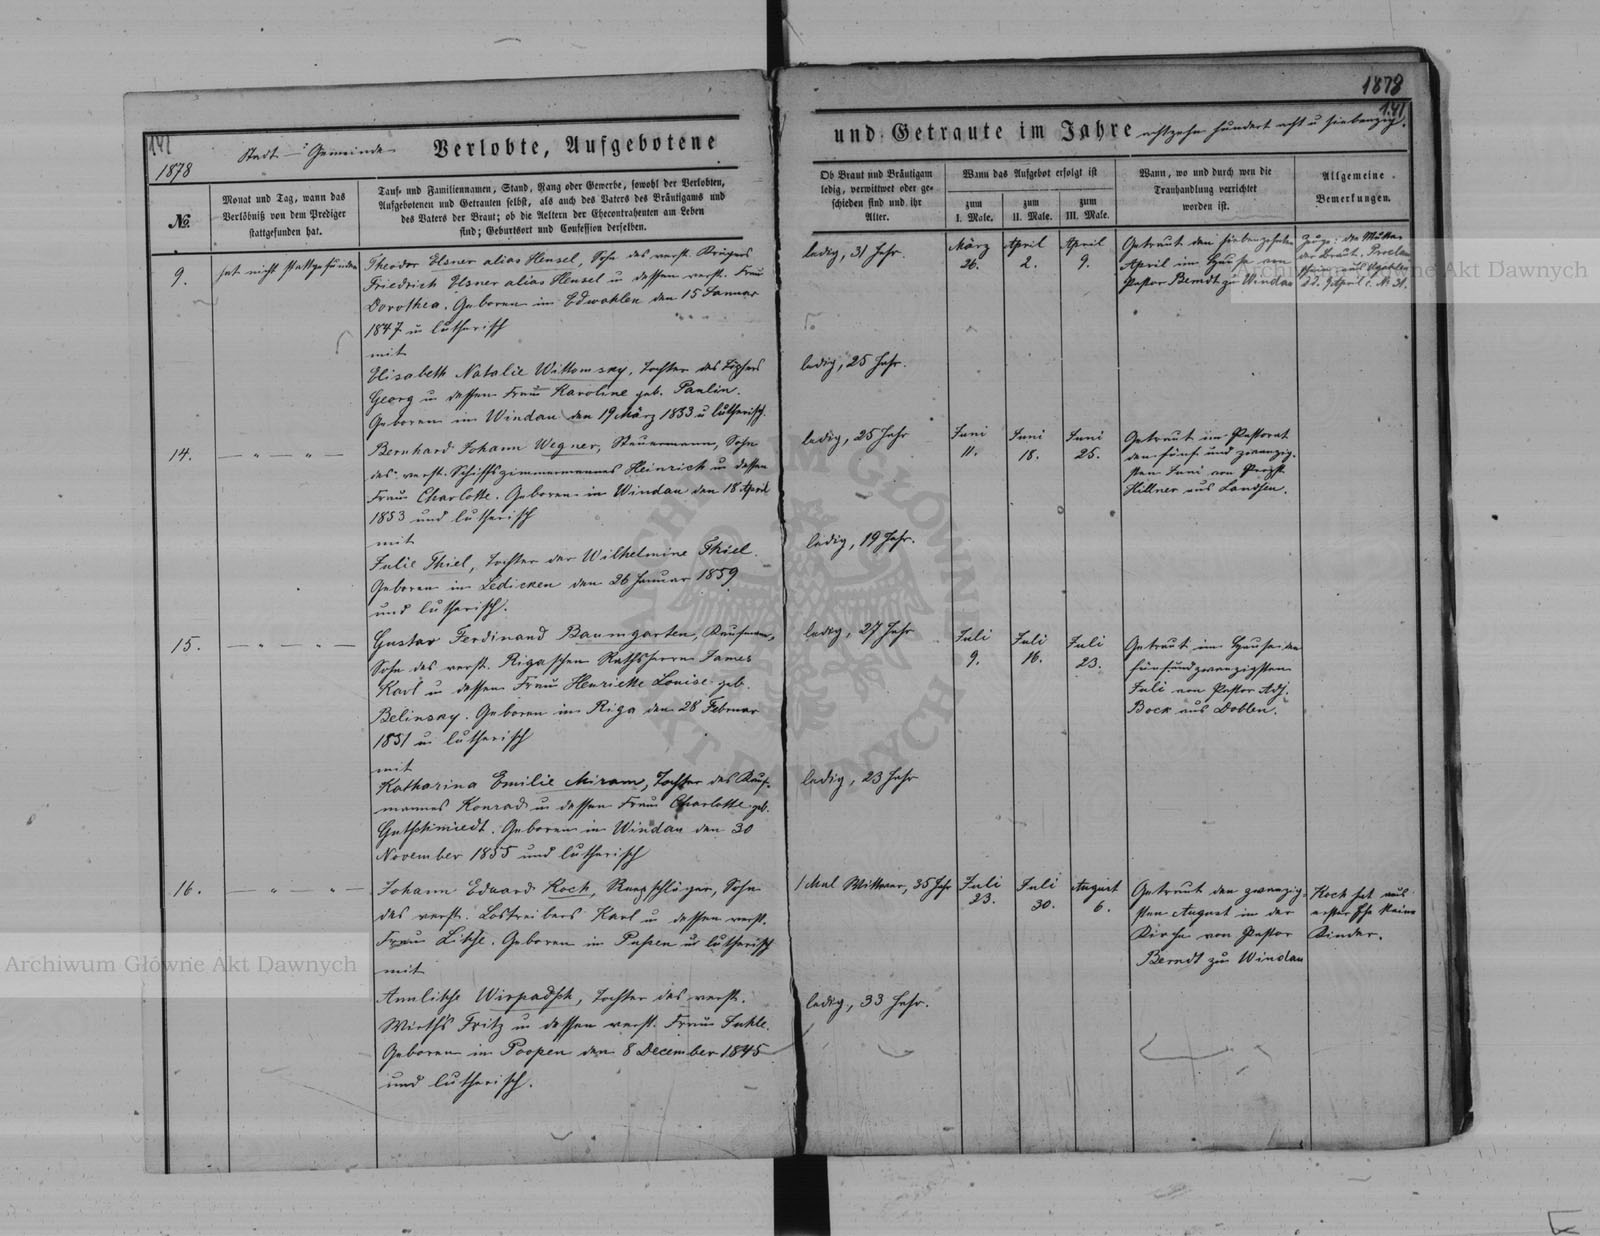 1878
141
141
1878
Stadt - Gemeinde
Verlobte, Aufgebotene
und Getraute im Jahre achtzehn hundert acht u siebenzig.
№
Monat und Tag, wann das
Verlöbniß von dem Prediger
stattgefunden hat.
Tauf- und Familiennamen, Stand, Rang oder Gewerbe, sowohl der Verlobten,
Aufgebotenen und Getrauten selbst, als auch des Vaters des Bräutigams und
des Vaters der Braut; ob die Aeltern der Ehecontrahenten am Leben
sind; Geburtsort und Confession derselben.
Ob Braut und Bräutigam
ledig, verwittwet oder ge-
schieden sind und ihr
Alter.
Wann das Aufgebot erfolgt ist
zum
I. Male.
zum
II. Male.
zum
III. Male.
Wann, wo und durch wen die
Trauhandlung verrichtet
worden ist.
Allgemeine
Bemerkungen.
9.
hat nicht stattgefunden
Theodor Elsner alias Hensel, Sohn des verst. Krügers
Friedrich Elsner alias Hensel u dessen verst. Frau
Dorothea. Geboren im Edwahlen den 15 Januar
1847 u lutherisch
mit
Elisabeth Natalie Wittomsky, Tochter des Töpfers
Georg u dessen Frau Karoline geb. Paulin.
Geboren in Windau den 19 März 1853 u lutherisch.
ledig, 31 Jahr.
ledig, 25 Jahr.
März
26.
April
2.
April
9.
Getraut den siebenzehnten
April im Hause von
Pastor Berndt zu Windau
Zeuge: die Mutter
der Braut. Proclam
April c. № 31.
14.
— " — " —
Bernhard Johann Wegner, Steuermann, Sohn
des verst. Schiffszimmermannes Heinrich u dessen
Frau Charlotte. Geboren in Windau den 18 April
1853 und lutherisch
mit
Julie Thiel, Tochter der Wilhelmine Thiel.
Geboren in Ledicken den 26 Januar 1859
und lutherisch.
ledig, 25 Jahr
ledig, 19 Jahr.
Juni
11.
Juni
18.
Juni
25.
Getraut im Pastorat
den fünf und zwanzig-
sten Juni von Propst
Hillner aus Landsen.
15.
— " — " —
Gustav Ferdinand Baumgarten, Kaufmann,
Sohn des verst. Rigaschen Rathsherrn James
Karl u dessen Frau Henriette Louise geb.
Belinsky. Geboren in Riga den 28 Februar
1851 u lutherisch
mit
Katharina Emilie Miram, Tochter des Kauf-
mannes Konrad u dessen Frau Charlotte geb.
Guthschmiedt. Geboren in Windau den 30
November 1855 und lutherisch
ledig, 27 Jahr
ledig, 23 Jahr
Juli
9.
Juli
16.
Juli
23.
Getraut im Hause den
fünfundzwanzigsten
Juli von Pastor Adj.
Bock aus Doblen.
16.
— " — " —
Johann Eduard Koch, Reepschläger, Sohn
des verst. Lostreibers Karl u dessen verst.
Frau Libbe. Geboren in Pussen u lutherisch
mit
Annlihse Wirpadsch, Tochter des verst.
Wirths Fritz u dessen verst. Frau Juhle.
Geboren in Poopen den 8 December 1845
und lutherisch.
1 Mal Wittwer, 35 Jahr
ledig, 33 Jahr.
Juli
23.
Juli
30.
August
6.
Getraut den zwanzig-
sten August in der
Kirche von Pastor
Berndt zu Windau
Koch hat aus
erster Ehe keine
Kinder.
Archiwum Główne Akt Dawnych
Archiwum Główne Akt Dawnych
ARCHIWUM GŁÓWNE AKT DAWNYCH